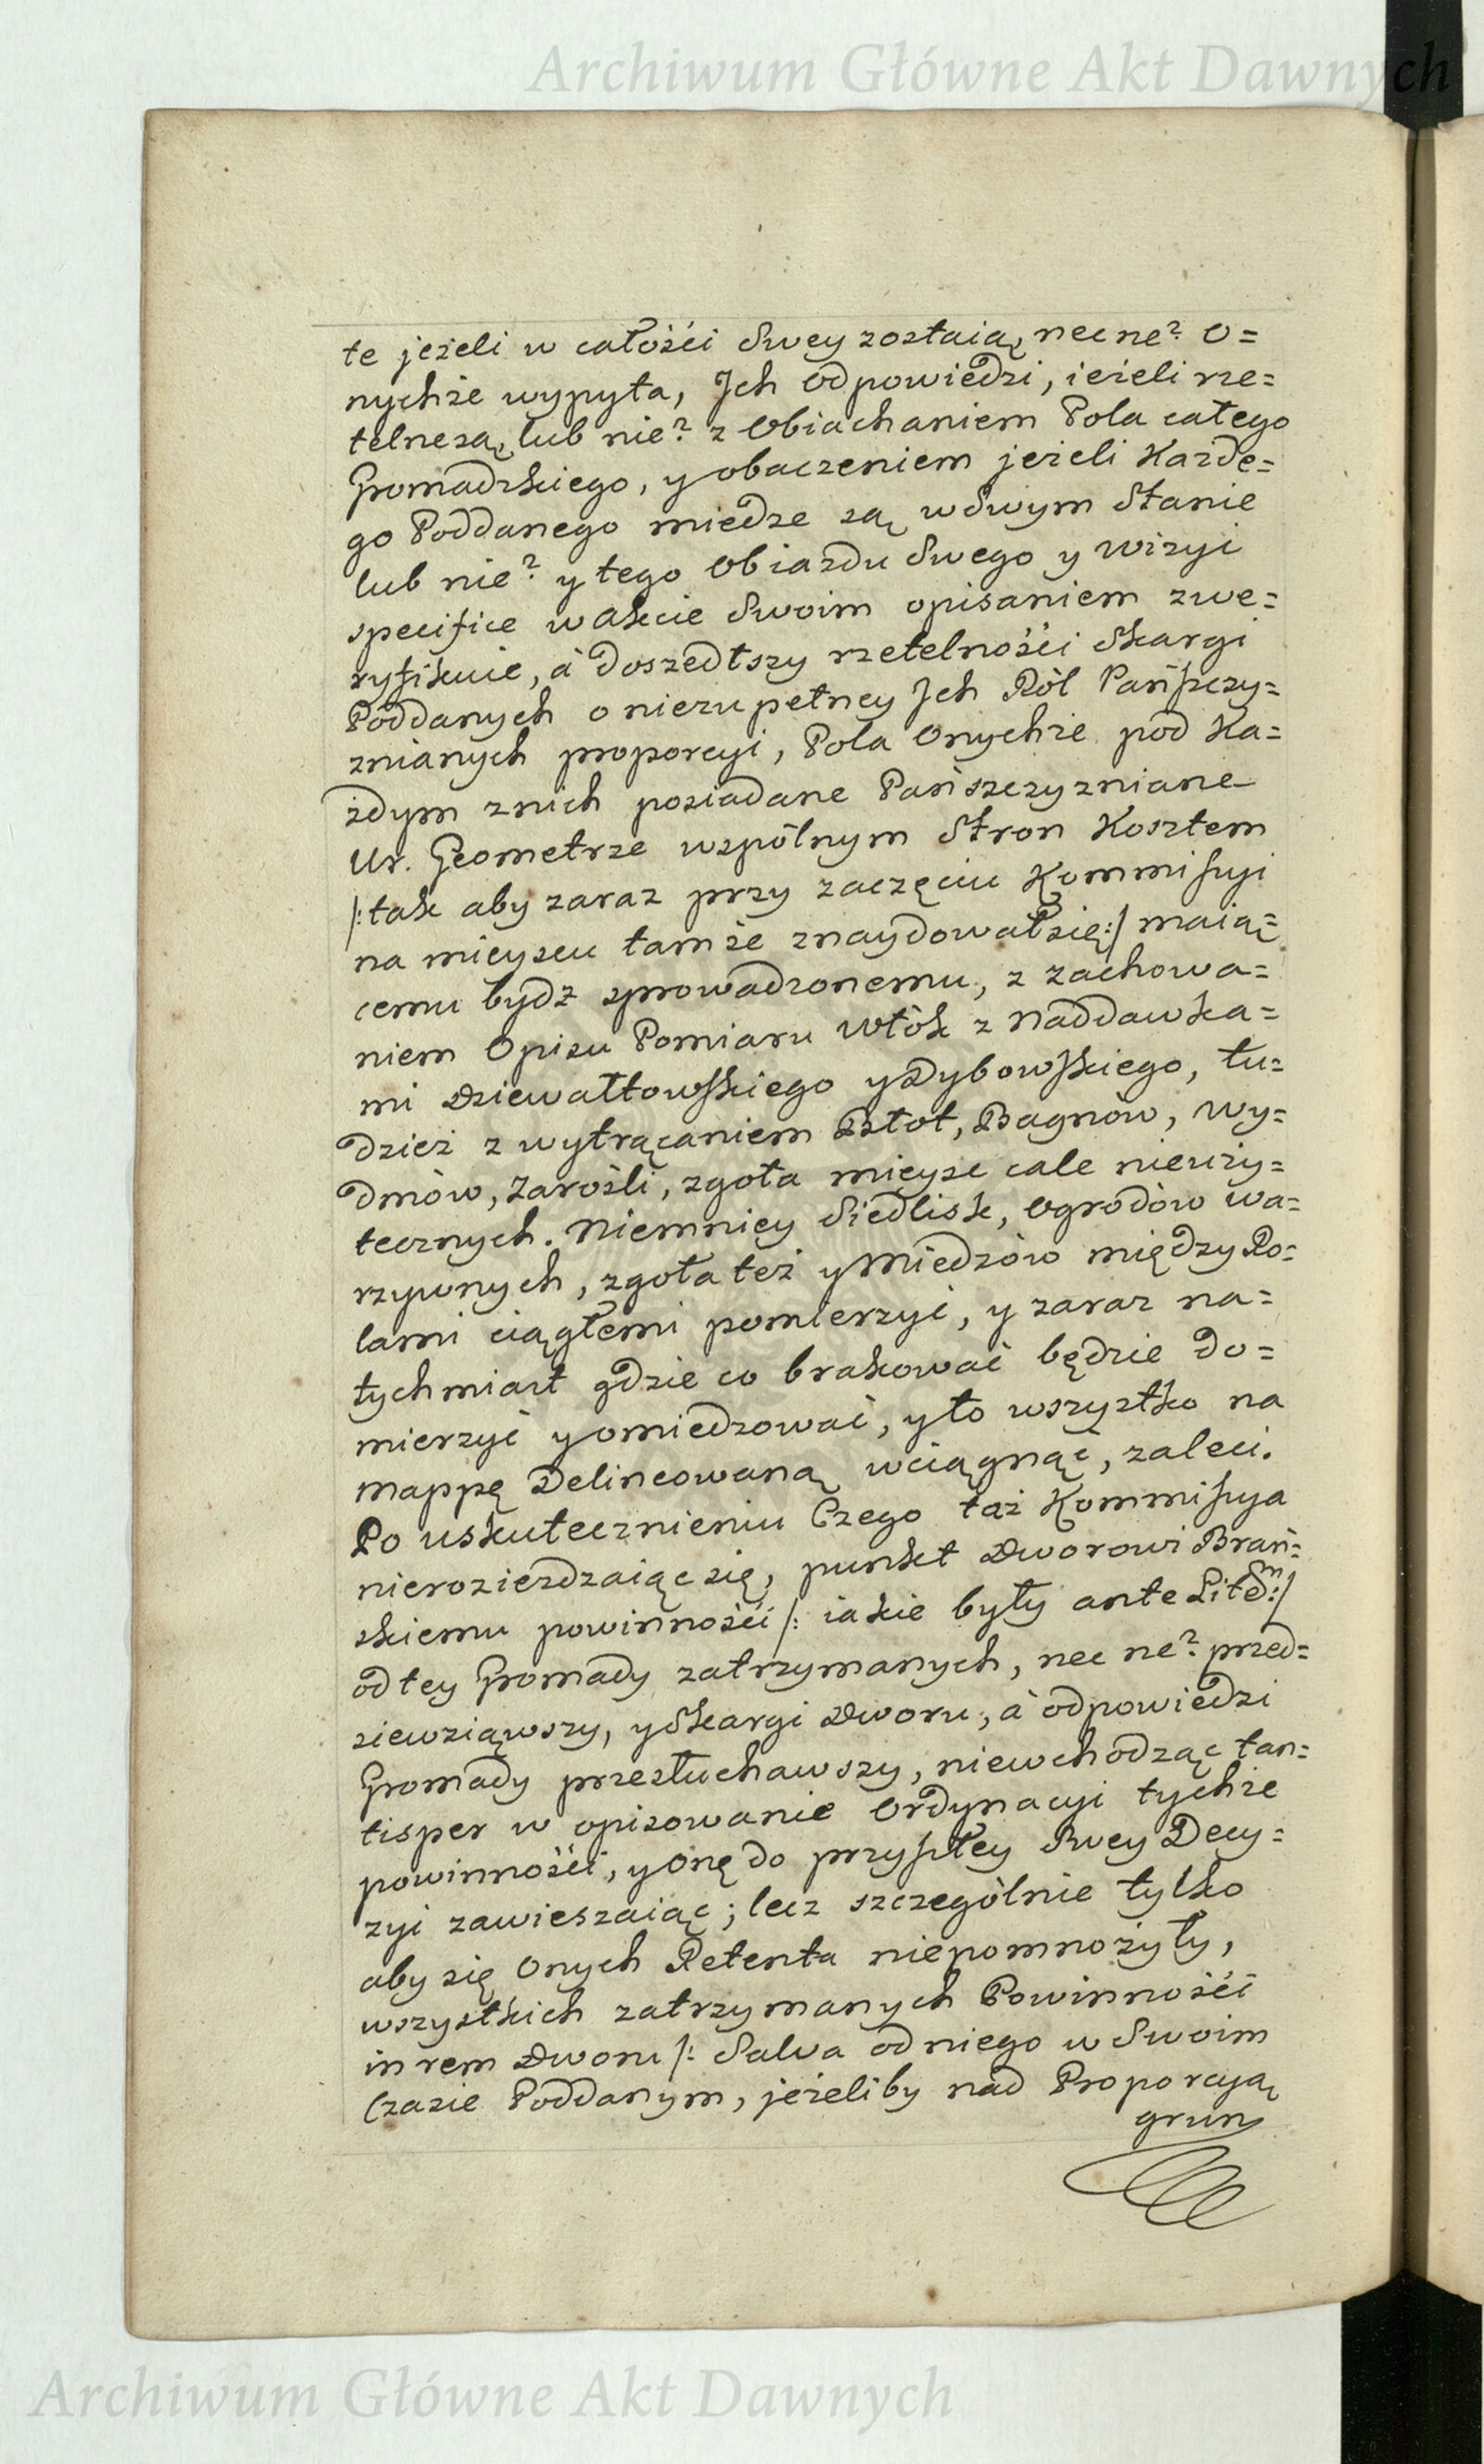 Archiwum Główne Akt Dawnych
te jeżeli w całośći Swey zostaią, nec ne? O=
nychże wypyta, Jch Odpowiedzi, ieżeli rze=
telne są, lub nie? z Obiachaniem Pola całego
Gromadzkiego, y obaczeniem jeżeli Każde=
go Poddanego miedze są w Swym Stanie
lub nie? y tego Obiazdu Swego y wizyi
specifice w akcie Swoim opisaniem zwe=
ryfikuie, à doszedłszy rzetelnośći Skargi
Poddanych o niezupełney Jch Rol Pańszczy=
znianych proporcyi, Pola Onychże pod Ka=
żdym z nich posiadane Pańszczyzniane
Ur. Geometrze wspólnym Stron Kosztem
/: tak aby zaraz przy zaczęciu Kommissyi
na mieyscu tamże znaydował się :/ maią=
cemu bydz sprowadzonemu, z zachowa=
niem Opisu Pomiaru Włók z Naddawka=
mi Dziewałtowskiego y Dybowskiego, tu=
dzież z wytrącaniem Błot, Bagnów, Wy=
dmów, Zarośli, zgoła mieysc cale nieuży=
tecznych. Niemniey Siedlisk, Ogrodów wa=
rzywnych, zgoła też y Miedzów między Ro=
lami ciągłemi pomierzyć, y zaraz na=
tychmiast gdzie co brakować będzie do=
mierzyć y omiedzować, y to wszystko na
mappę Delineowaną wciągnąć, zaleci.
Po uskutecznieniu Czego taż Kommissya
nierozieżdzaiąc się, punkt Dworowi Brań=
skiemu powinnośći /: iakie były ante Litem :/
od tey Gromady zatrzymanych, nec ne? przed=
siewziąwszy, y Skargi Dworu, à odpowiedzi
Gromady przesłuchawszy, niewchodząc tan=
tisper w opisowanie Ordynacyi tychże
powinnośći, y onę do przyszłey Swey Decy=
zyi zawieszaiąc; lecz szczególnie tylko
aby się Onych Retenta niepomnożyły,
wszystkich zatrzymanych Powinnośći
in rem Dworu /: Salva od niego w Swoim
Czasie Poddanym, jeżeliby nad Proporcyą
grun
Archiwum Główne Akt Dawnych